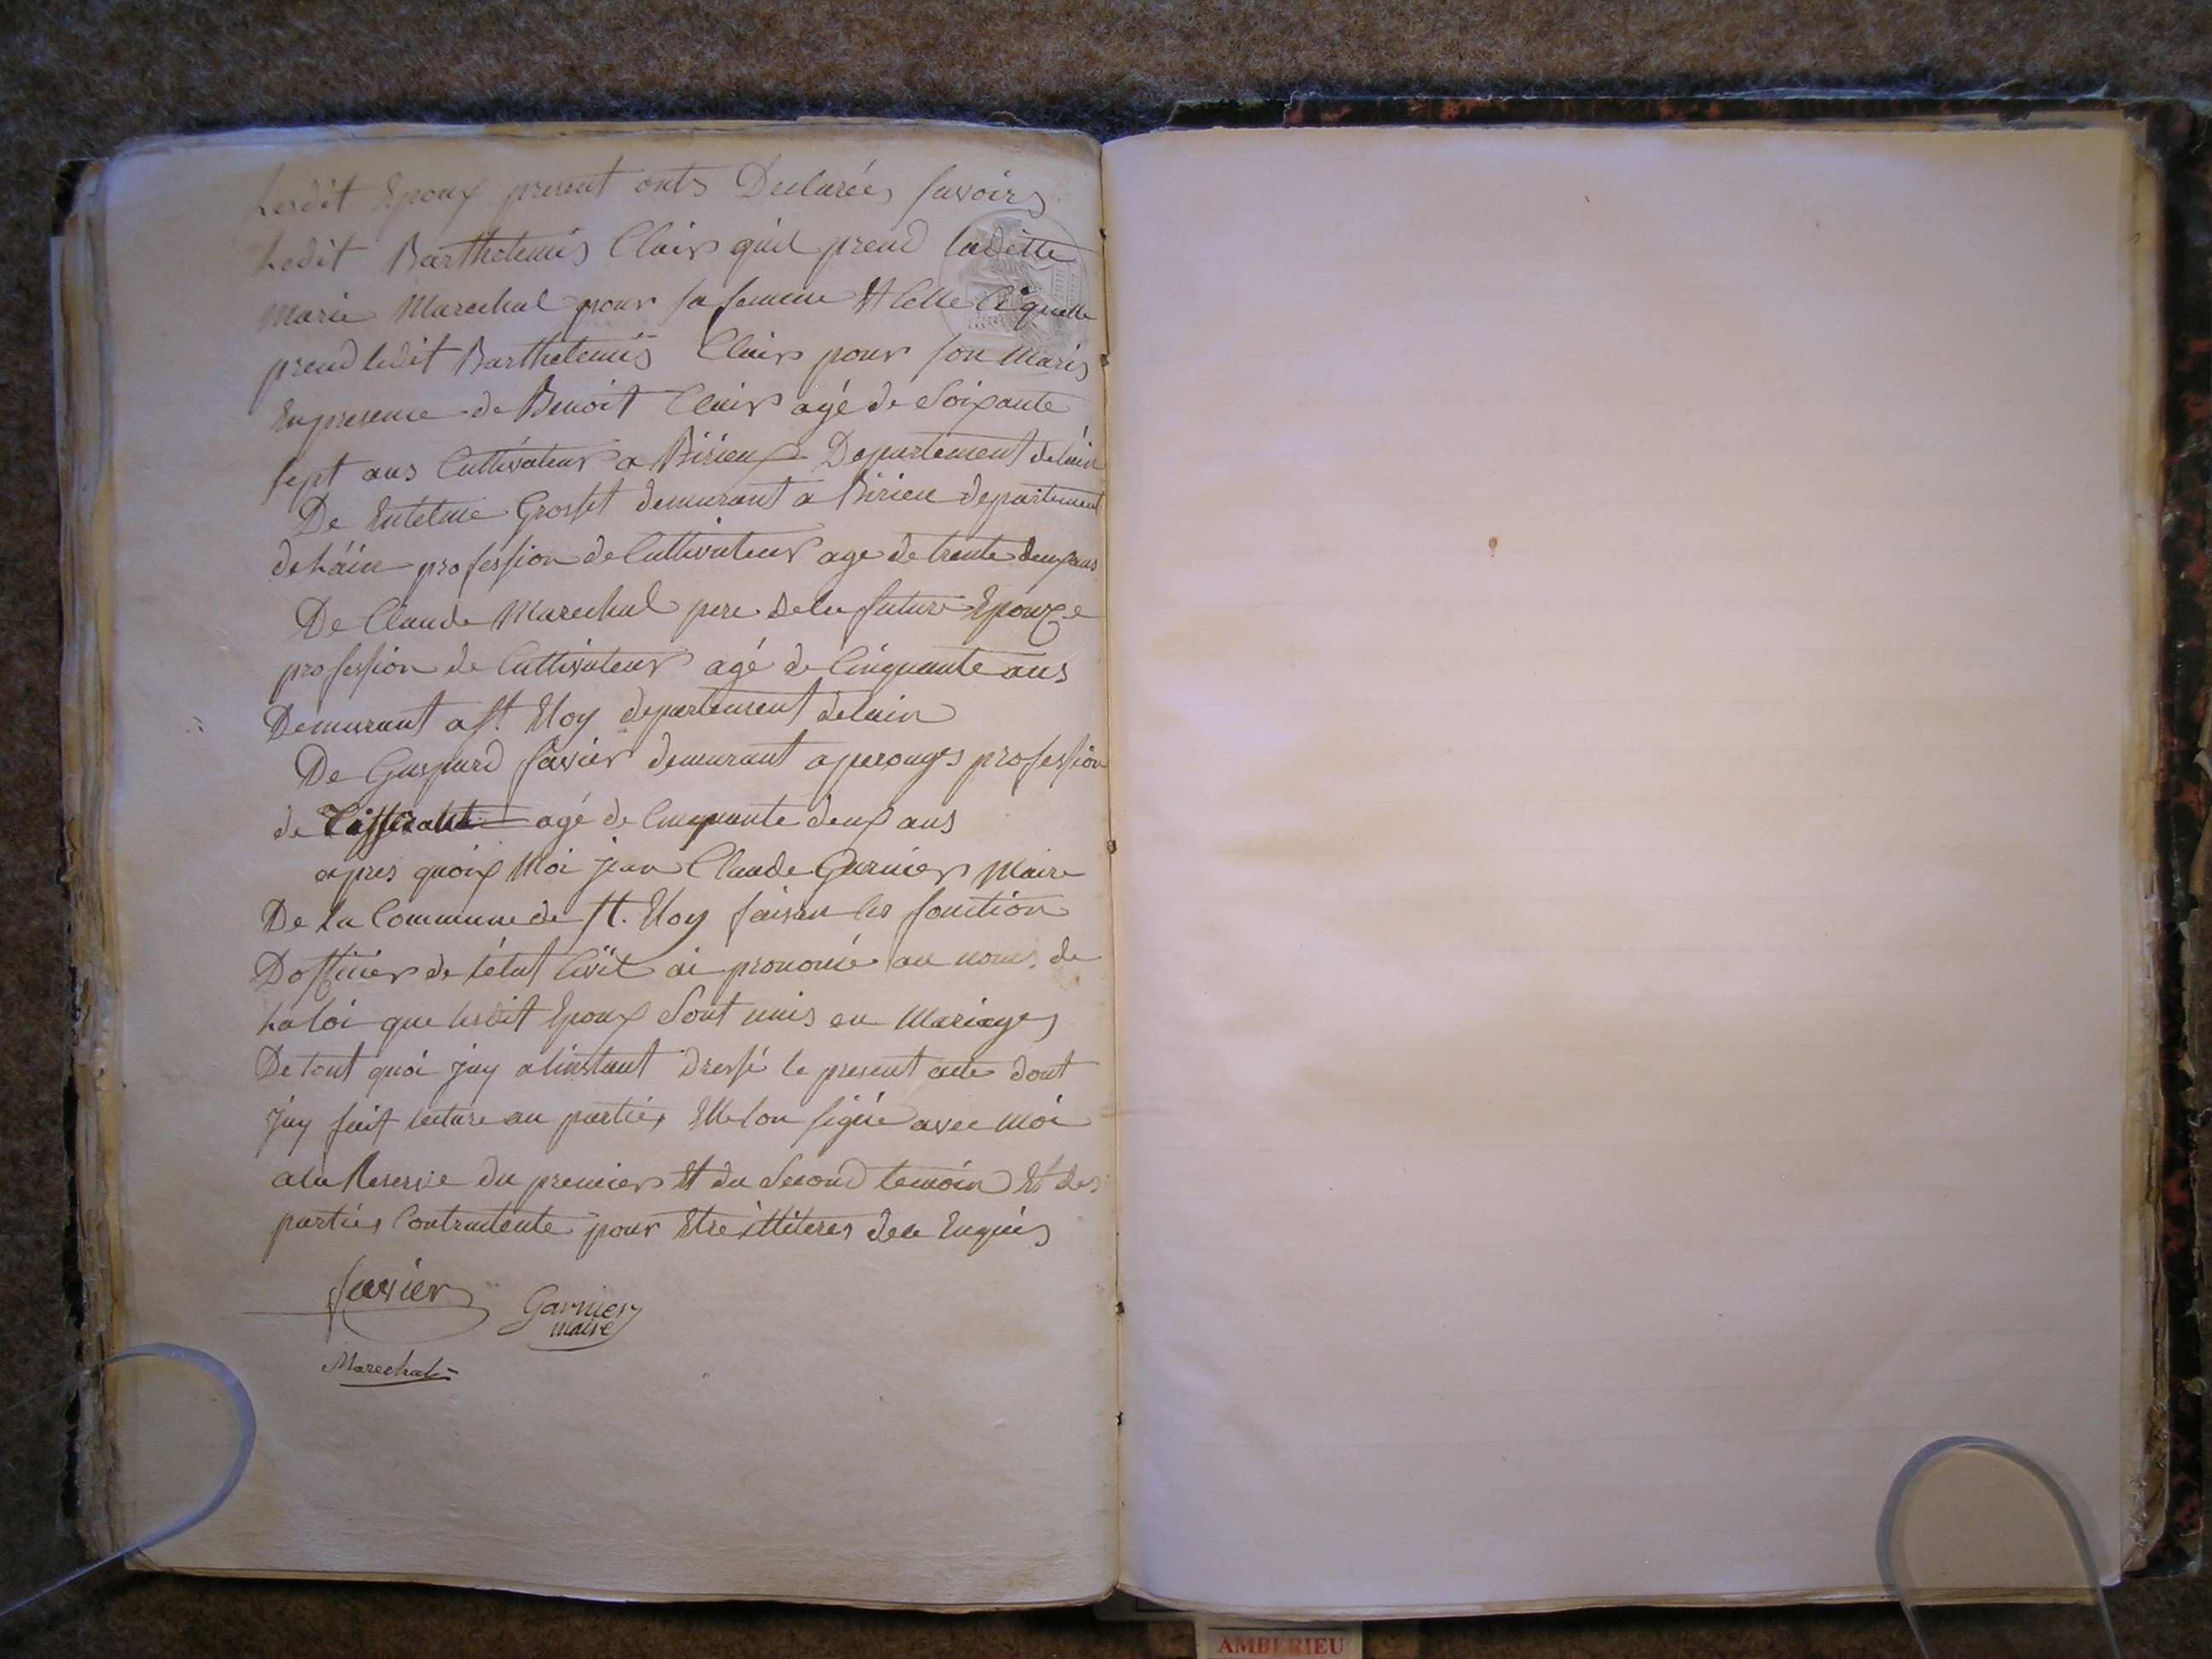 Lesdit Epoux present onts Declarées savoirs
Ledit Barthelemis Clairs quil prend laditte
Marie Marechal pour sa femme Et Celle Ci quelle
prend ledit Barthelemis Clairs pour son Maris
En presence de Benoit Clairs agé de Soixante
sept ans Cultivateur a Birieux Departement delain
De Entelme Grosset demurant a Birieu departement
de Láin profession de Cultivateur age de trente deux ans
De Claude Marechal pere dela future Epouxe
profession de Cultivateur agé de Cinquante ans
Demurant a St. Eloy departement delain
De Gaspard favier demurant aperouges profession
de Tisserant agé de Cinquante deux ans
apres quoix Moi jean Claude Garniers Maire
De la Commune de St. Eloy faisan les fonction
Dofficiers de létat Civil ai prononcé au noms de
La loi que lesdit Epoux Sont unis en Mariages
De tout quoi jay alinstant Dressé le present acte dont
Jay fait lecture au parties Elle lon signé avec Moi
ala Reserve du premiers Et du Second temoin Et des
parties Contractente pour Etre illiteres dece Enquis
favier
Garnier
maire
Marechal
AMBERIEU